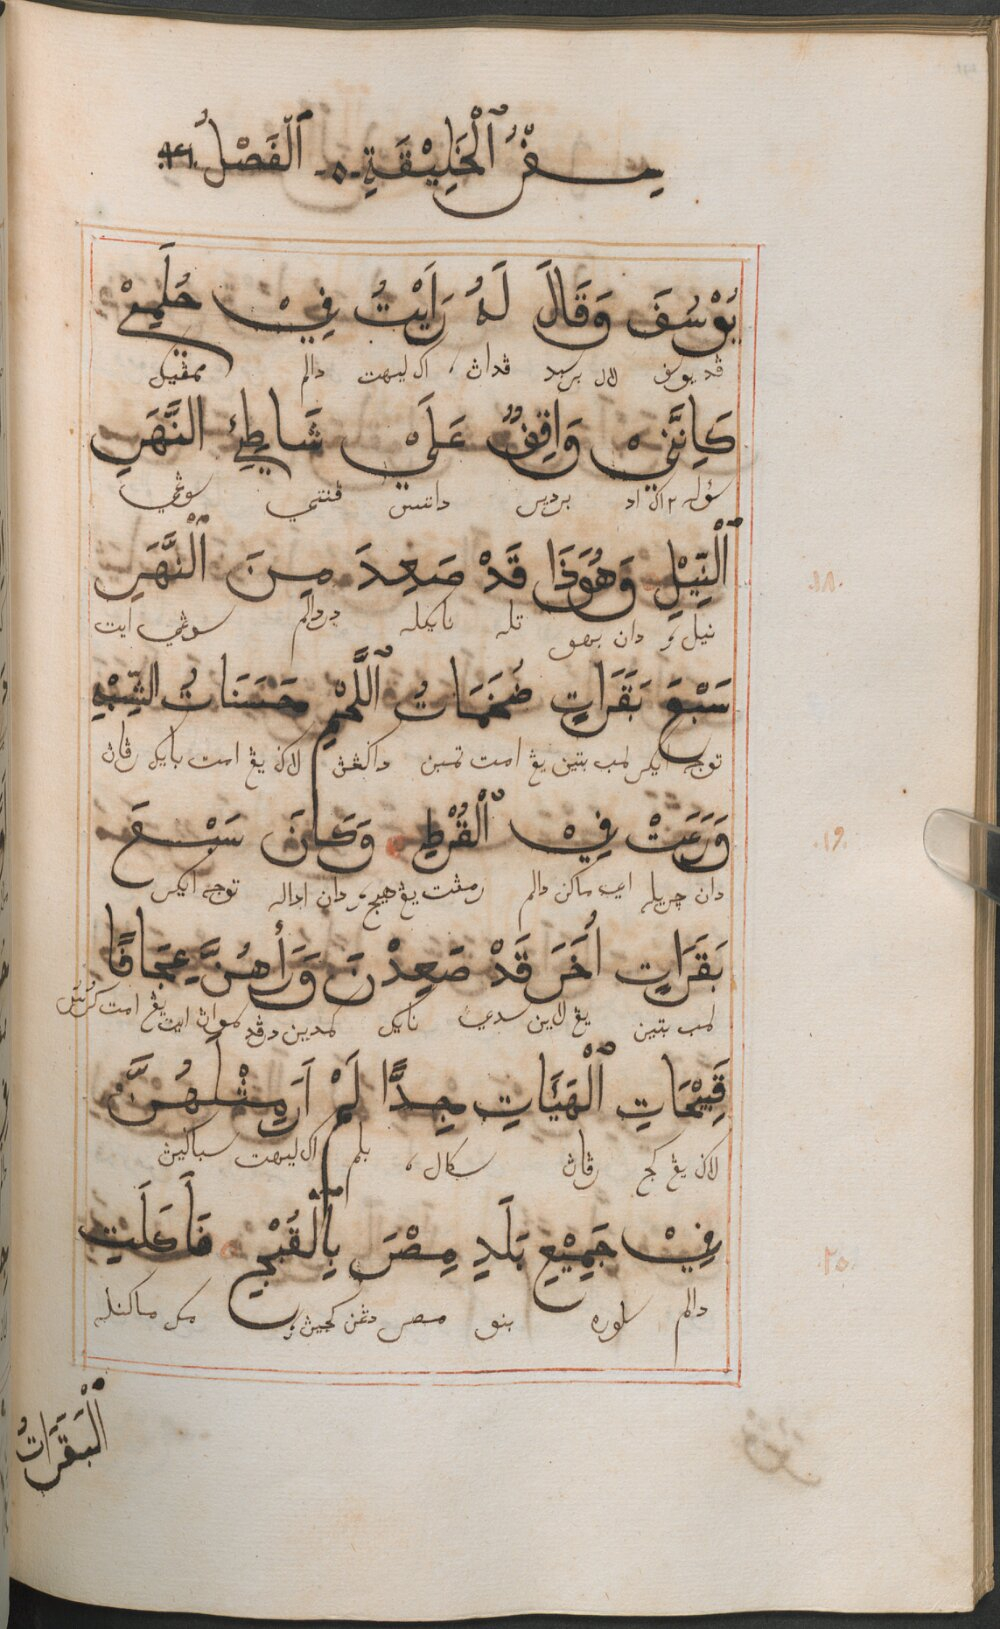 سِفْرُ ٱلْخَلِيْقَةِ ٱلْفَصْلُ .٤١.
يُوْسُفَ وَقَالَ لَهُ رَايْتُ فِيْ حُلَمِيْ
قد يوسف لال برسبد قداڽ اک ليهت دالم ممڤيک
كَانَّنِيْ وَاقِفٌ عَلَيْ شَاطِئِ النَّهَرِ
سؤله ٢ اک اد برديرى دانتس ڤنتي سوڠي
ٱلْنِّيْلِ وَهُوَذَا قَدْ صَعِدَ مِنَ ٱلْنَّهَرِ
نيل دان بهو تله نايکله دردالم سوڠي ايت
.١٨.
سَبْعَ بَقَرَاتٍ ضَخَمَاتُ ٱللَّحْمِ حَسَنَاتُ الشِّبْهِ
توجه ايکر لمب بتين يڠ امت تمبن داڬڠڽ لاڬ يڠ امت بايک رڤاڽ
وَرَعَتْ فِيْ ٱلْقُرْطِ وَكَانَ سَبْعَ
دان چريله اي ماکن دالم رمڤت يڠ هيجو دان اداله توجه ايکر
.١٩.
بَقَرَاتٍ اُخَرَ قَدْ صَعِدْنَ وَرَأهُنَّ عِجَافًا
لمب بتين يڠ لاين سدي نايک کمدين درڤد مواڽ ايت يڠ امت کورس
قَبِيْحَاتِ ٱلْهَيَّاتِ جِدًّا لَمْ اَرَ مِثْلَهُنَّ
لاڬ يڠ کج رڤاڽ سکال بلم اک ليهت سباڬيڽ
فِيْ جَمِيْعِ بَلَدِ مِصْرَ بِٱلْقُبْحِ فَأَكَلَتِ
دالم سلوره بنو مصر دڠن کجيڽ مک ماکنله
.٢٠.
ٱلْبَقَرَاتُ